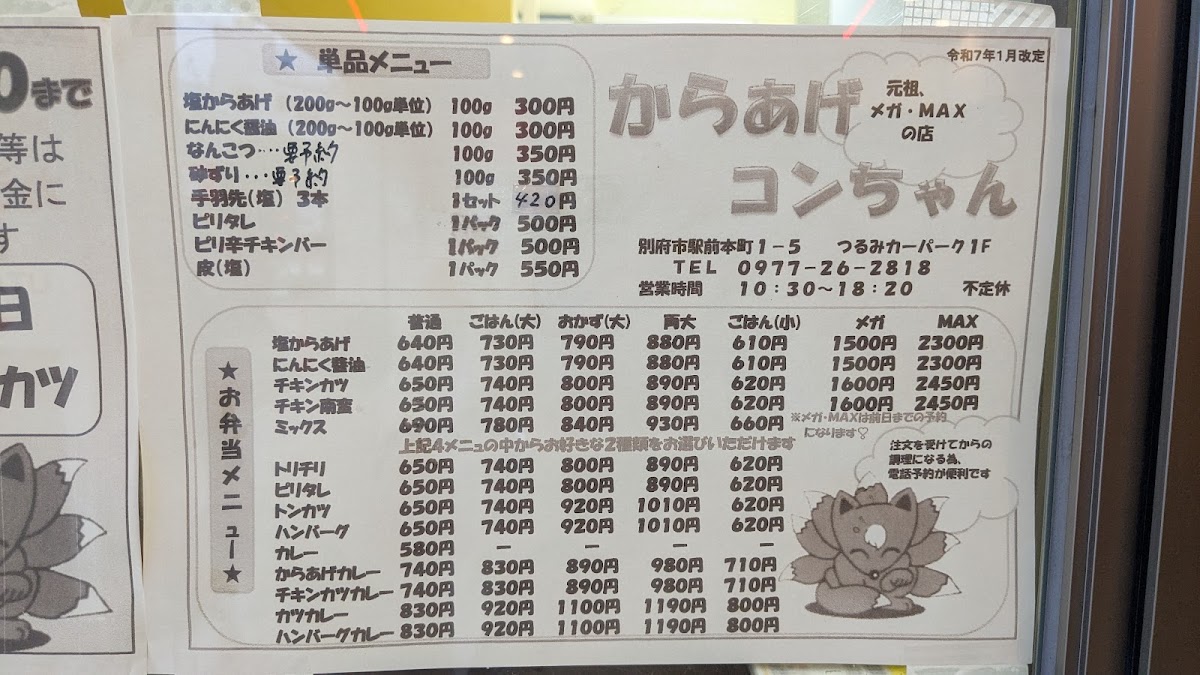 0まで
等は
金に
す
日
カツ
★ 単品メニュー
塩からあげ (200g～100g単位) 100g 300円
にんにく醤油 (200g～100g単位) 100g 300円
なんこつ…要予約 100g 350円
砂ずり…要予約 100g 350円
手羽先(塩) 3本 1セット 420円
ピリタレ 1パック 500円
ピリ辛チキンバー 1パック 500円
皮(塩) 1パック 550円
令和7年1月改定
からあげ
コンちゃん
元祖、
メガ・MAX
の店
別府市駅前本町1-5 つるみカーパーク1F
TEL 0977-26-2818
営業時間 10:30～18:20 不定休
★お弁当メニュー★
普通 ごはん(大) おかず(大) 両大 ごはん(小) メガ MAX
塩からあげ 640円 730円 790円 880円 610円 1500円 2300円
にんにく醤油 640円 730円 790円 880円 610円 1500円 2300円
チキンカツ 650円 740円 800円 890円 620円 1600円 2450円
チキン南蛮 650円 740円 800円 890円 620円 1600円 2450円
ミックス 690円 780円 840円 930円 660円
※メガ・MAXは前日までの予約
になります♡
上記4メニュの中からお好きな2種類をお選びいただけます
トリチリ 650円 740円 800円 890円 620円
ピリタレ 650円 740円 800円 890円 620円
トンカツ 650円 740円 920円 1010円 620円
ハンバーグ 650円 740円 920円 1010円 620円
カレー 580円 － － － －
からあげカレー 740円 830円 890円 980円 710円
チキンカツカレー 740円 830円 890円 980円 710円
カツカレー 830円 920円 1100円 1190円 800円
ハンバーグカレー 830円 920円 1100円 1190円 800円
注文を受けてからの
調理になる為、
電話予約が便利です